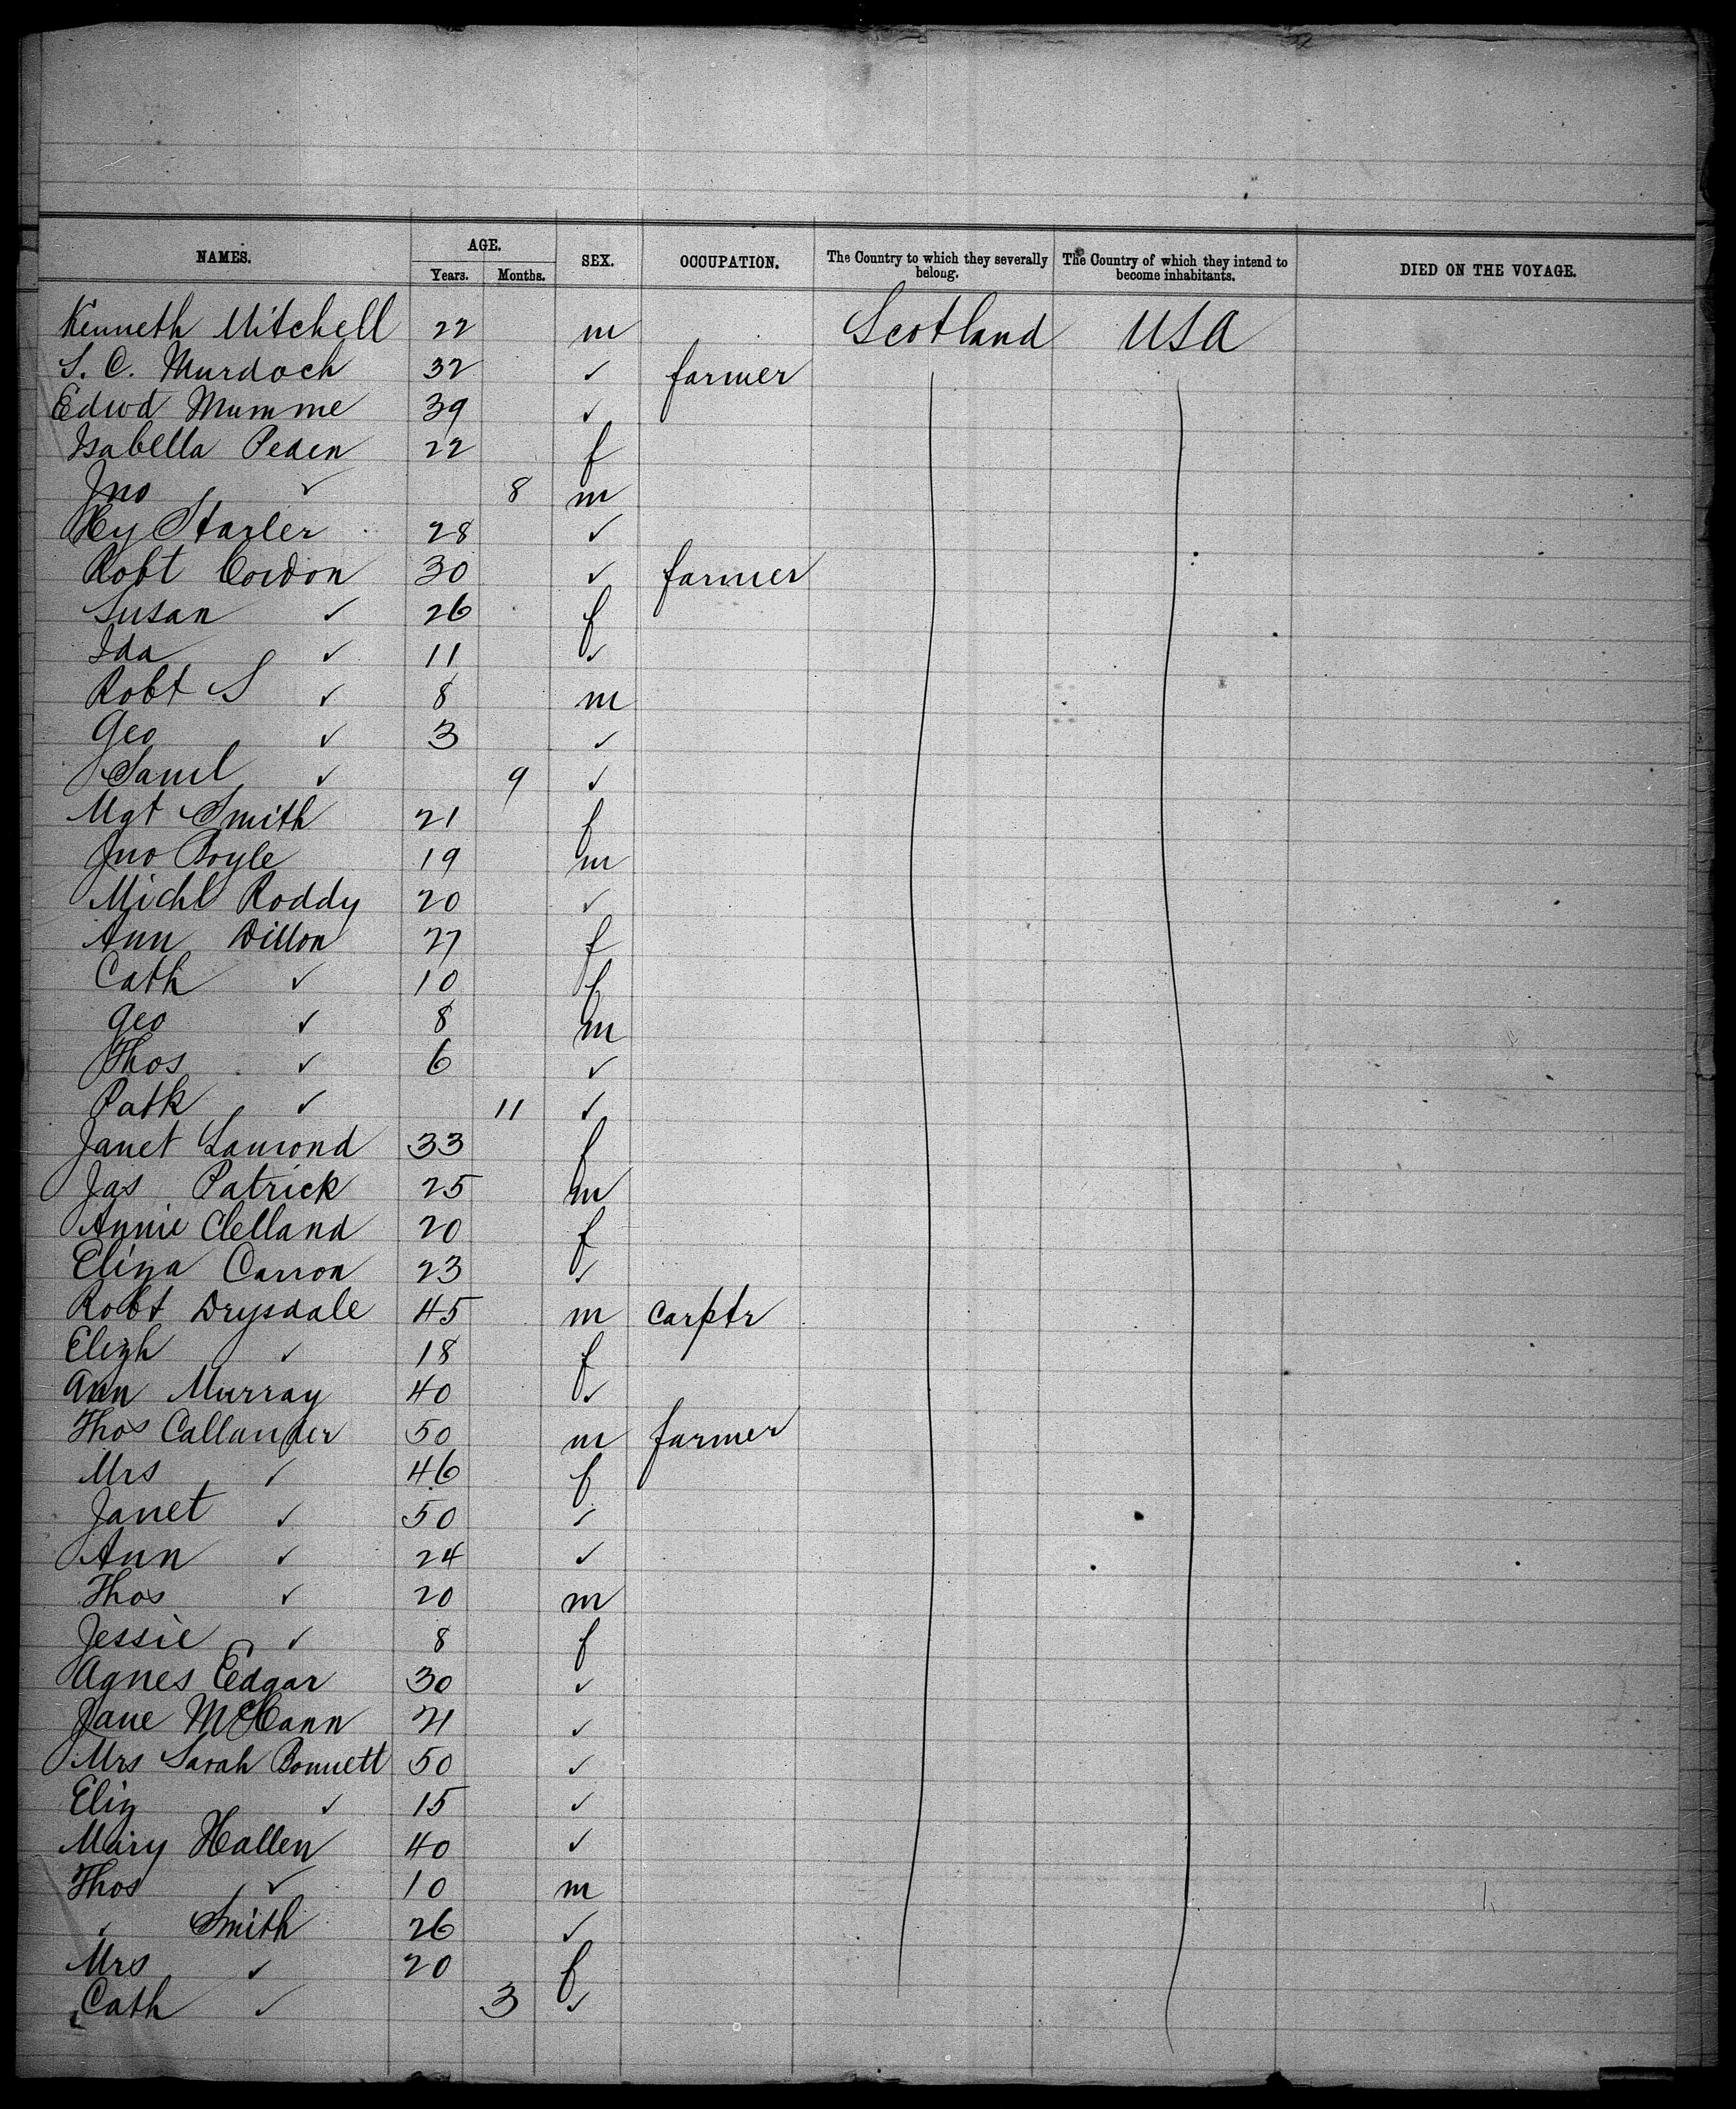 NAMES. AGE. SEX. OCCUPATION. The Country to which they severally belong. The Country of which they intend to become inhabitants. DIED ON THE VOYAGE.
Years. Months.
Kenneth Mitchell 22 m Scotland USA
S. C. Murdoch 32 ✓ farmer
Edwd Mumme 39 ✓
Isabella Peden 22 f
Jno ✓ 8 m
Hy Starler 28 ✓
Robt Cordon 30 ✓ farmer
Susan ✓ 26 f
Ida ✓ 11 ✓
Robt S ✓ 8 m
Geo ✓ 3 ✓
Saml ✓ 9 ✓
Mgt Smith 21 f
Jno Boyle 19 m
Michl Roddy 20 ✓
Ann Dillon 27 f
Cath ✓ 10 f
Geo ✓ 8 m
Thos ✓ 6 ✓
Patk ✓ 11 ✓
Janet Lamond 33 f
Jas Patrick 25 m
Annie Clelland 20 f
Eliza Carron 23 ✓
Robt Drysdale 45 m carptr
Elizh ✓ 18 f
Ann Murray 40 ✓
Thos Callander 50 m farmer
Mrs ✓ 46 f
Janet ✓ 50 ✓
Ann ✓ 24 ✓
Thos ✓ 20 m
Jessie ✓ 8 f
Agnes Edgar 30 ✓
Jane McCann 21 ✓
Mrs Sarah Bonnett 50 ✓
Eliz ✓ 15 ✓
Mary Hallen 40 ✓
Thos ✓ 10 m
✓ Smith 26 ✓
Mrs ✓ 20 f
Cath ✓ 3 ✓